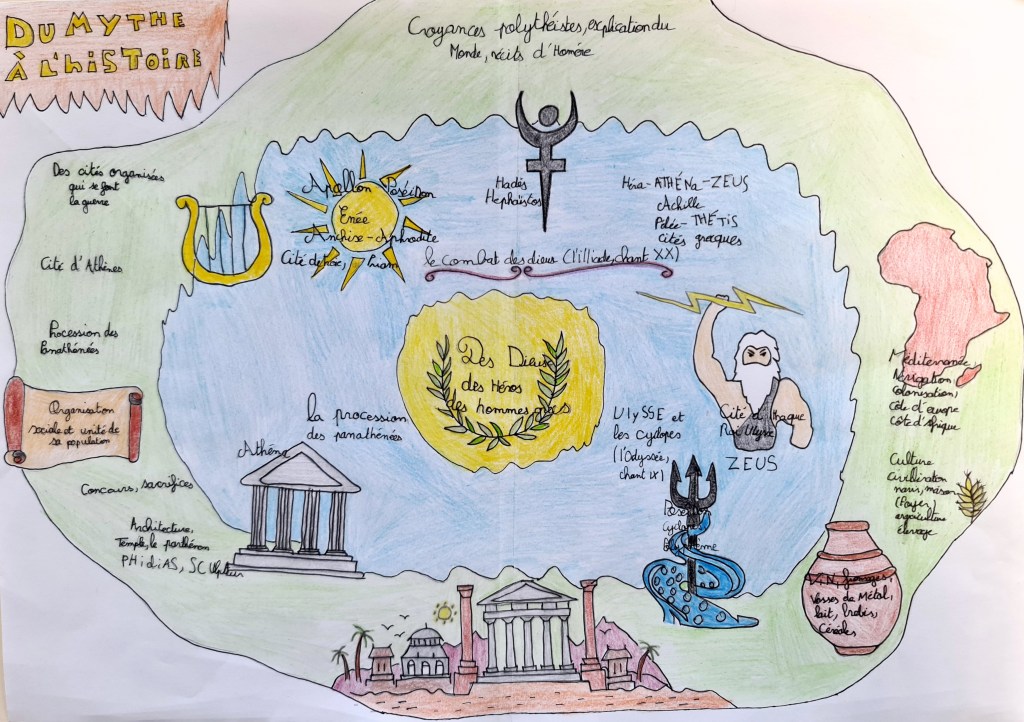 DU MYTHE
À L'hiSToiRE
Croyances polythéistes, explication du
Monde, récits d'Homère
Des cités organisées
qui se font
la guerre
Cité d'Athènes
Procession des
Panathénées
Organisation
sociale et unité de
sa population
Concours, sacrifices
Architecture,
Temple, le parthénon
PHidiAS, SCulpteur
Apollon Poséidon
Enée
Anchise - Aphrodite
Cité de troie, Priam
Hadès
Hephaïstos
Héra - ATHÉNa - ZEUS
Achille
Pélée - THÉTiS
Cités grecques
le combat des dieux (l'illiade, chant XX)
Des Dieux
des Héros
des hommes grecs
la procession
des panathénées
Athéna
UlySSE et
les cyclopes
(l'Odyssée,
chant IX)
Cité d'Ithaque
Roi Ulysse
ZEUS
Poséidon
Cyclope
Polyphème
Méditerranée
Navigation
Colonisation,
Côte d'europe
Côte d'Afrique
Culture
Civilisation
navire, maison
(Foyer)
agriculture
élevage
ViN, fromages,
Vases de Métal,
lait, brebis,
Céréales